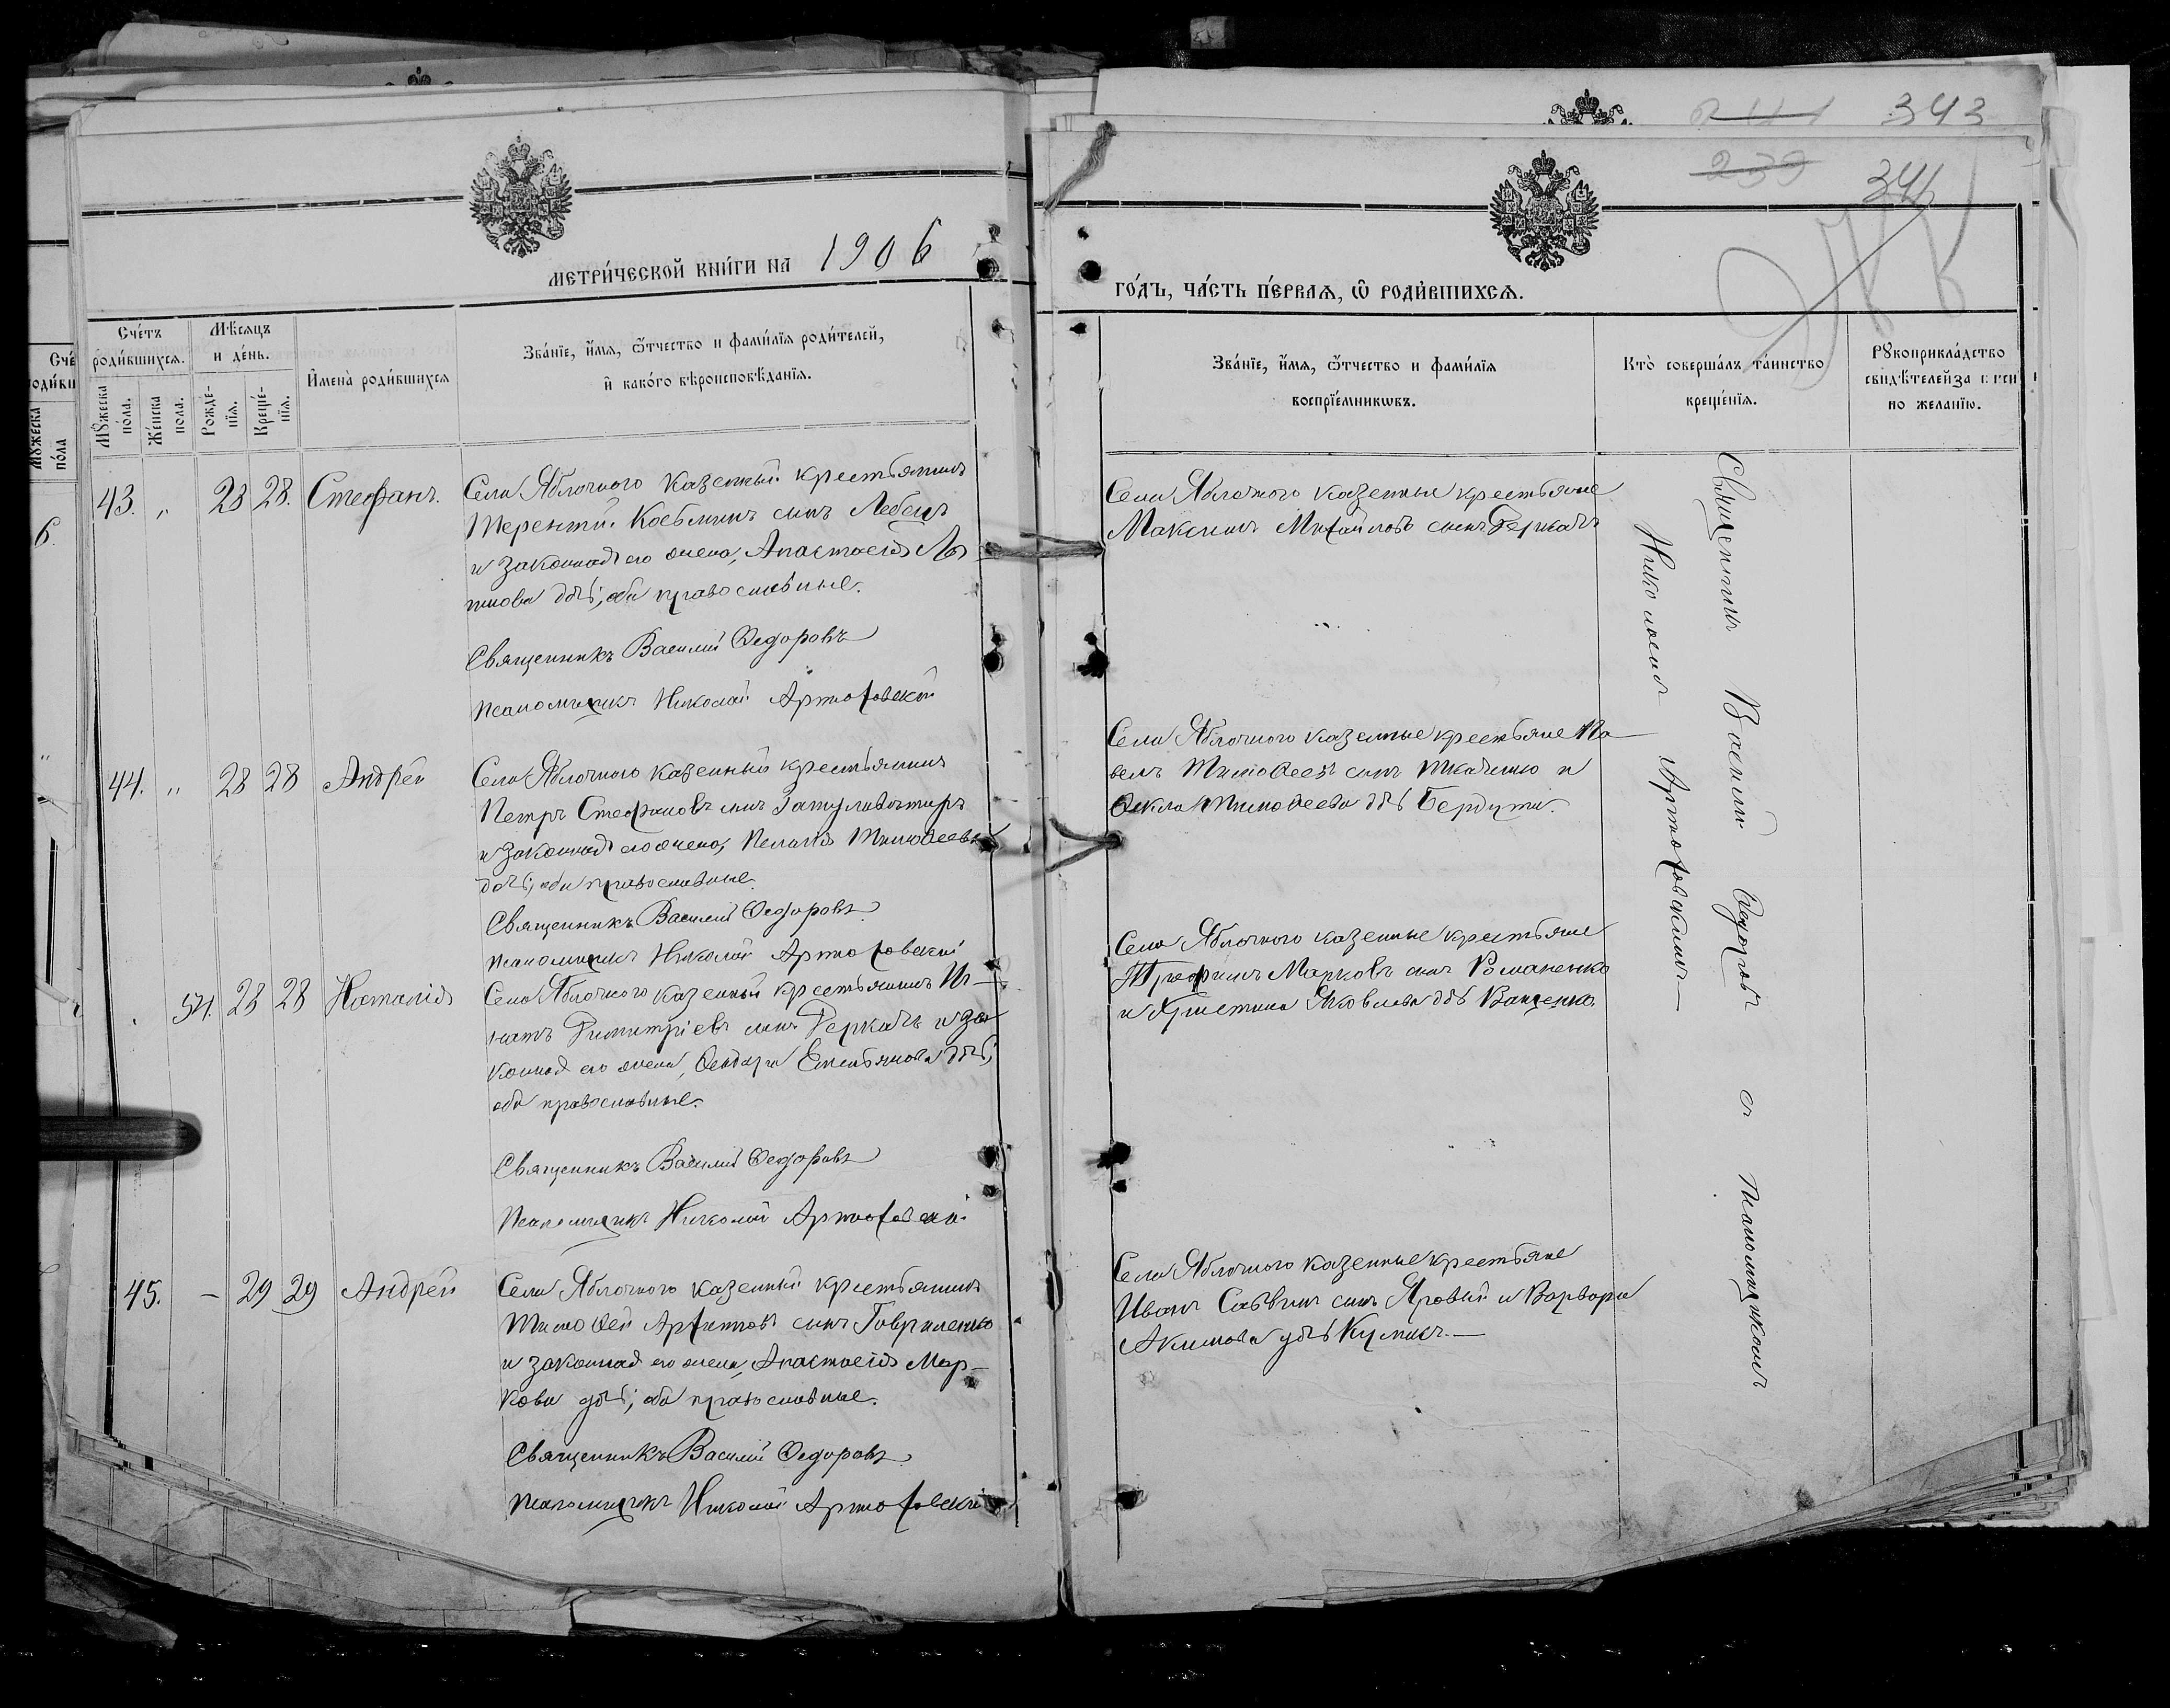 343
239
341
МЕТРИ́ЧЕСКОЙ КНИ́ГИ НА 1906
ГО́ДЪ, ЧА́СТЬ ПЕ́РВАЯ, Ѡ РОДИ́ВШИХСЯ.
Сче́тъ роди́вшихся.
Мꙋ́жеска по́ла.
Же́нска пола.
Мѣ́сяцъ и де́нь.
Рожде́нїя.
Креще́нїя.
И҆мена̀ роди́вшихся
Зва́нїе, и҆́мя, ѻ҆́тчество и фами́лїя роди́телей,
и҆ како́гѡ вѣроисповѣ́данїя.
Зва́нїе, и҆́мя, ѻ҆́тчество и фами́лїя
воспрїе́мникѡвъ.
Кто̀ соверша́лъ та́инство
креще́нїя.
Рꙋкоприкла́дство
свидѣ́телей
по жела́нїю.
43. „ 28 28. Стефанъ.
Села Яблочного казенный крестьянинъ
Терентій Косьминъ сынъ Лебедь
и законная его жена, Анастасія
дочь; оба православные.
Священникъ Василій Ѳедоровъ
Псаломщикъ Николай Артюховскій
Села Яблочного казенные крестьяне
Максимъ Михайловъ сынъ Геркачъ
44. „ 28 28 Андрей
Села Яблочного казенный крестьянинъ
Петръ Стефановъ сынъ
и законная его жена, Пелагія Тимоѳеева
дочь; оба православные.
Священникъ Василій Ѳедоровъ
Псаломщикъ Николай Артюховскій
Села Яблочного казенные крестьяне Па-
велъ Тимоѳеевъ сынъ Ткаченко и
Ѳекла Тимоѳеева дочь
54. 28 28 Наталія
Села Яблочного казенный крестьянинъ Иг-
натъ Димитріевъ сынъ Геркачъ и за-
конная его жена, Емельянова дочь;
оба православные.
Священникъ Василій Ѳедоровъ
Псаломщикъ Николай Артюховскій
Села Яблочного казенные крестьяне
Трофимъ Марковъ сынъ Романенко
и Христина Яковлева дочь Ващенко.
45. – 29 29 Андрей
Села Яблочного казенный крестьянинъ
Тимоѳей Архиповъ сынъ Гавриленко
и законная его жена, Анастасія Мар-
кова дочь; оба православные.
Священникъ Василій Ѳедоровъ
Псаломщикъ Николай Артюховскій
Села Яблочного казенные крестьяне
Иванъ Саввинъ сынъ Яровый и Варвара
Акимова дочь Куликъ.
Священникъ Василій Ѳедоровъ съ Псаломщикомъ
Николаемъ Артюховскимъ